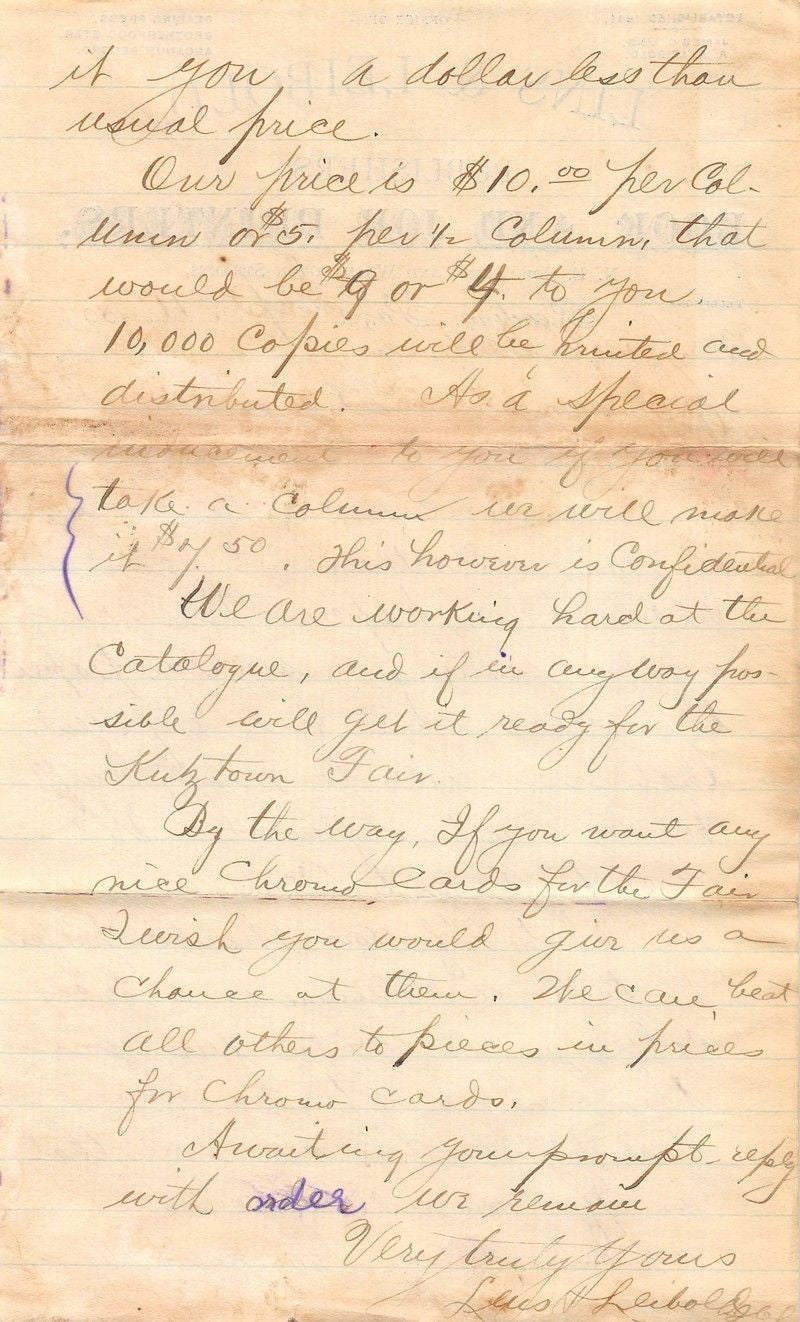 it you a dollar less than
usual price.
Our price is $10.00 per Col-
umn or $5. per ½ Column, that
would be $9 or $4. to you
10,000 Copies will be printed and
distributed. As a special
inducement to you if you will
take a Column we will make
it $7.50. This however is Confidential
We are working hard at the
Catalogue, and if in any way pos-
sible will get it ready for the
Kutztown Fair.
By the way, If you want any
nice Chromo Cards for the Fair
I wish you would give us a
chance at them. We can beat
all others to pieces in prices
for Chromo cards.
Awaiting your prompt reply
with order we remain
Very truly Yours
Lins & Leibold